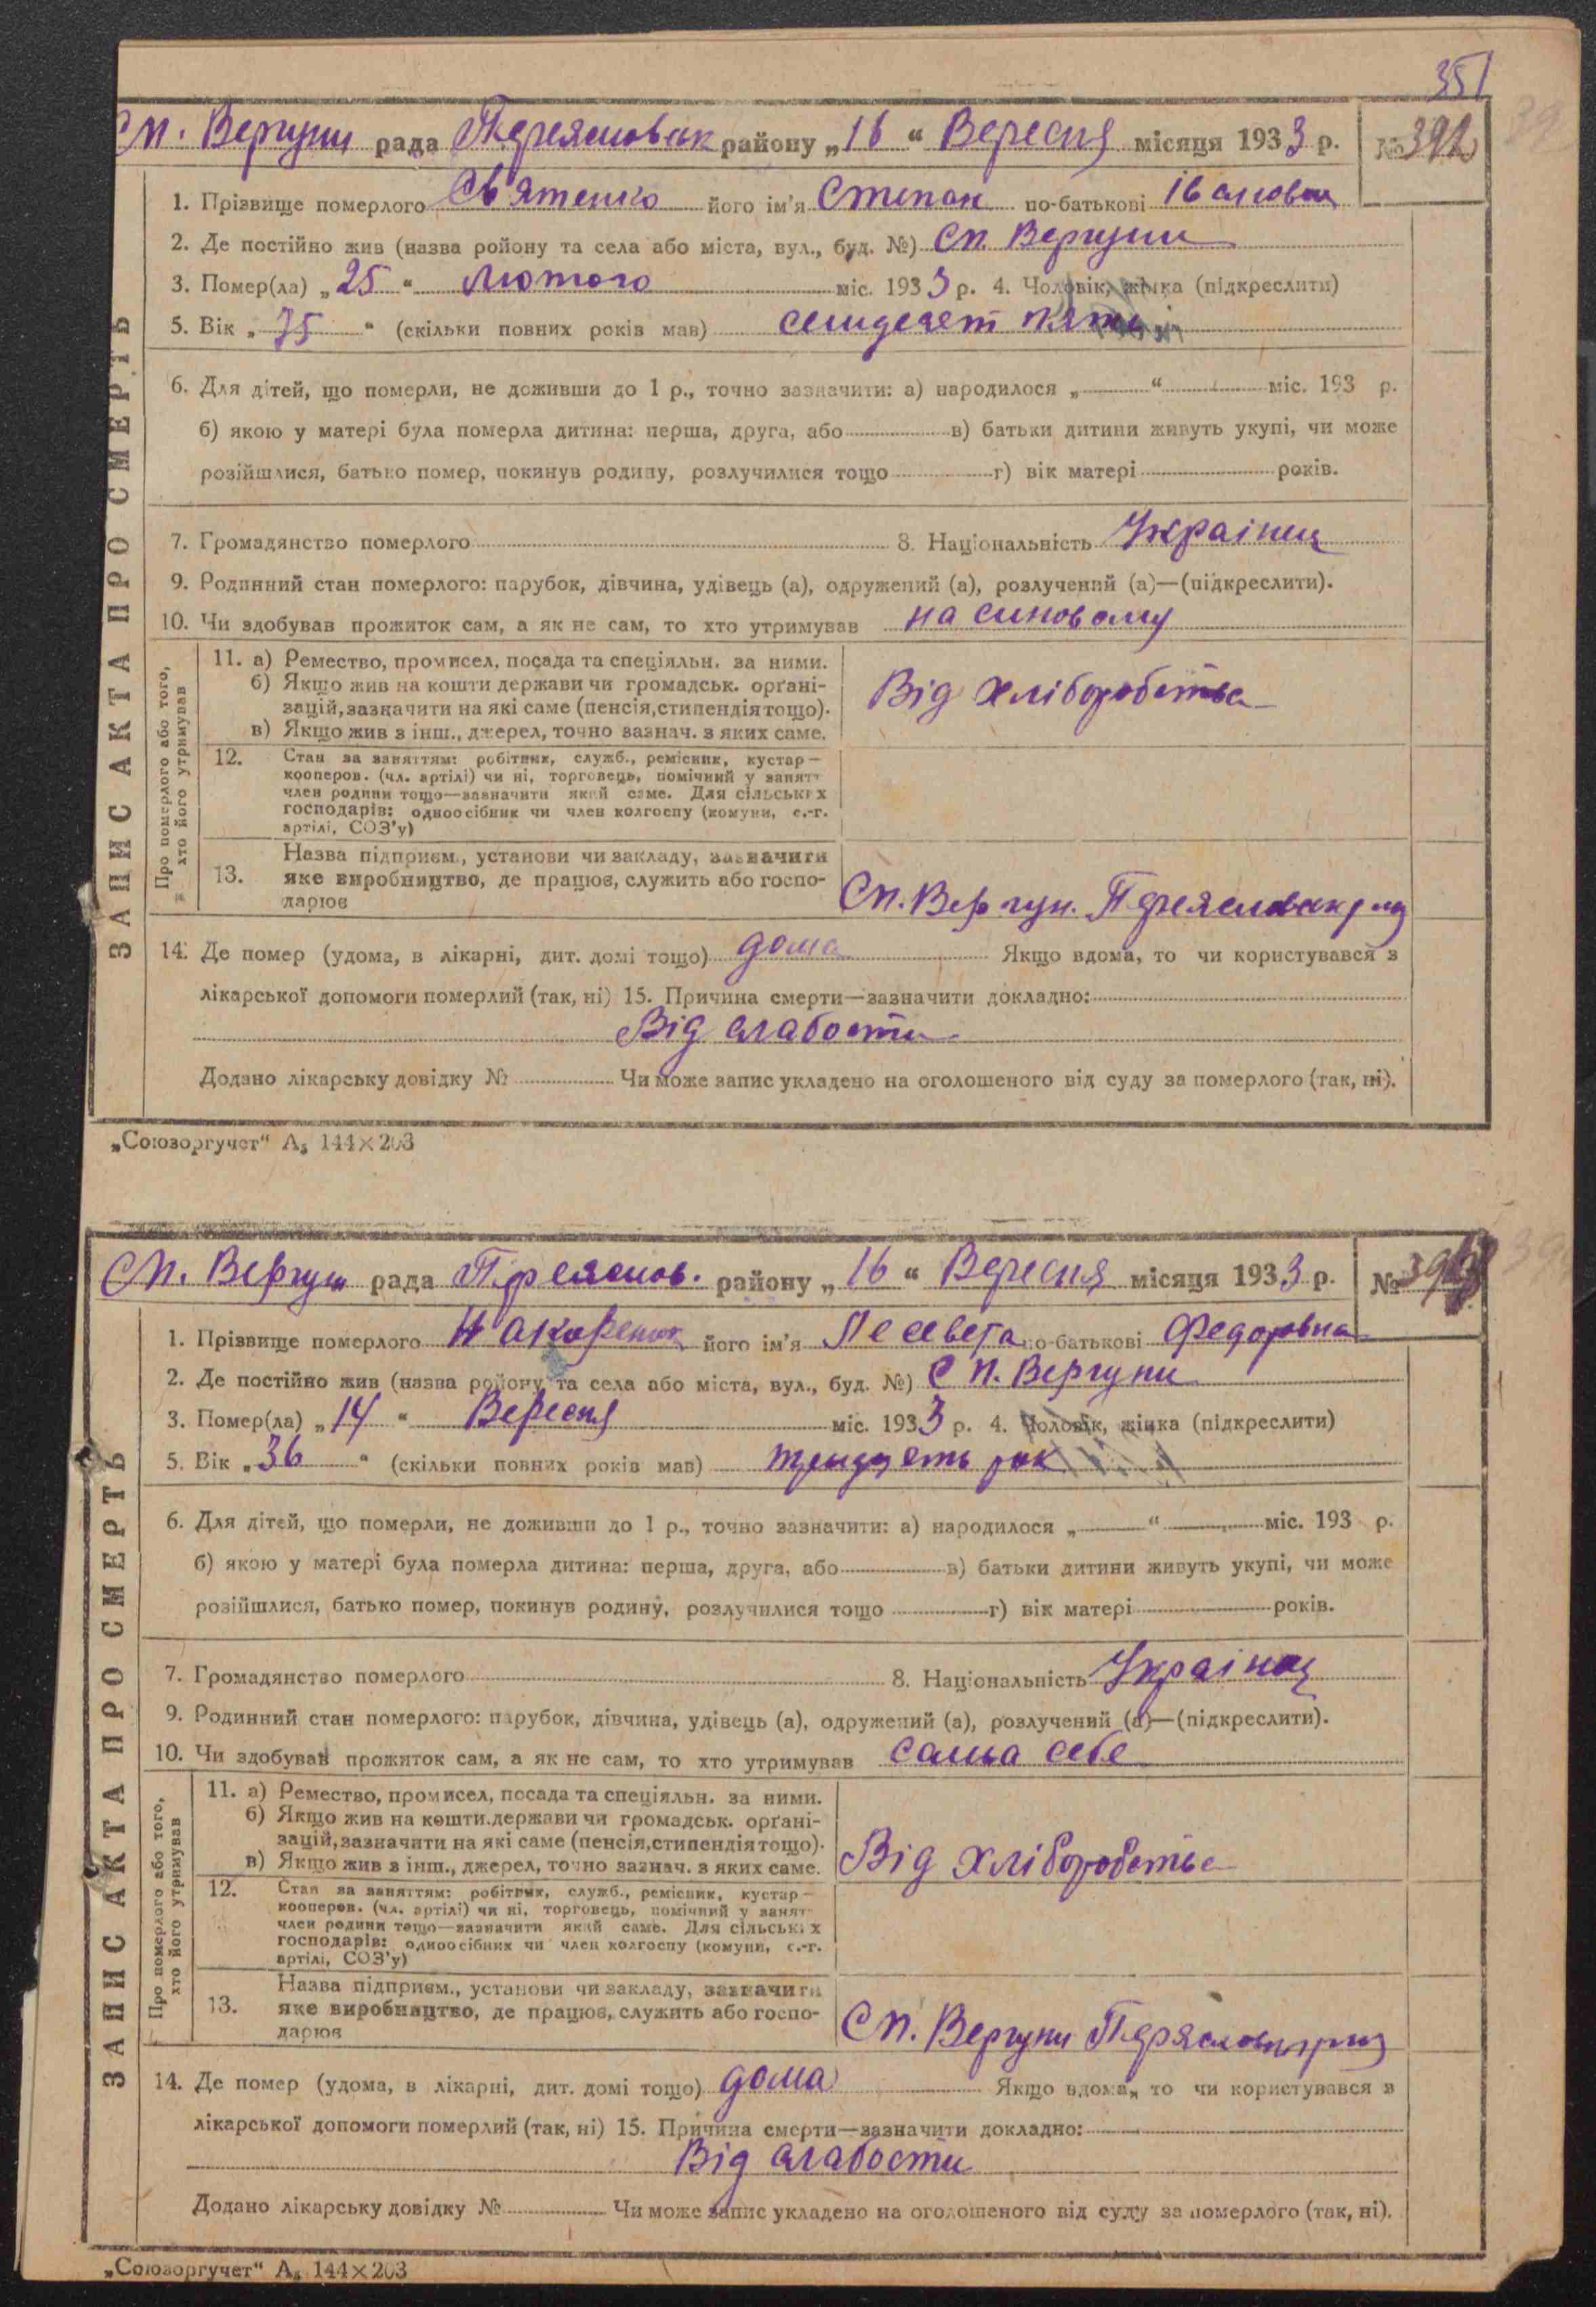 351
Сп. Вергуни рада Переяславськ району „16“ Вересня місяця 1933 р. № 392
ЗАПИС АКТА ПРО СМЕРТЬ
1. Прізвище померлого Святенко його ім'я Степан по-батькові Іванович
2. Де постійно жив (назва ройону та села або міста, вул., буд. №) Сп. Вергуни
3. Помер(ла) „25“ Лютого міс. 1933 р. 4. Чоловік, жінка (підкреслити)
5. Вік „75“ (скільки повних років мав) семидесят пять
6. Для дітей, що померли, не доживши до 1 р., точно зазначити: а) народилося „ “ міс. 193 р.
б) якою у матері була померла дитина: перша, друга, або в) батьки дитини живуть укупі, чи може
розійшлися, батько помер, покинув родину, розлучилися тощо г) вік матері років.
7. Громадянство померлого 8. Національність Украінец
9. Родинний стан померлого: парубок, дівчина, удівець (а), одружений (а), розлучений (а)—(підкреслити).
10. Чи здобував прожиток сам, а як не сам, то хто утримував на синовому
Про померлого або того, хто його утримував
11. а) Ремество, промисел, посада та спеціяльн. за ними.
б) Якщо жив на кошти держави чи громадськ. орґані-
зацій, зазначити на які саме (пенсія, стипендія тощо).
в) Якщо жив з інш., джерел, точно зазнач. з яких саме.
Від хліборобства
12. Стан за заняттям: робітник, служб., ремісник, кустар—
кооперов. (чл. артілі) чи ні, торговець, помічний у занят
член родини тощо—зазначити який саме. Для сільських
господарів: одноосібник чи член колгоспу (комуни, с.-г.
артілі, СОЗ'у)
Назва підприєм., установи чи закладу, зазначити
13. яке виробництво, де працює, служить або госпо-
дарює
Сп. Вергун. Переяславск
14. Де помер (удома, в лікарні, дит. домі тощо) дома Якщо вдома, то чи користувався з
лікарської допомоги померлий (так, ні) 15. Причина смерти—зазначити докладно:
Від слабости
Додано лікарську довідку № Чи може запис укладено на оголошеного від суду за померлого (так, ні).
„Союзоргучет“ А₅ 144×203
Сп. Вергун рада Переяслов. району „16“ Вересня місяця 1933 р. № 393
ЗАПИС АКТА ПРО СМЕРТЬ
1. Прізвище померлого його ім'я Лесевета по-батькові Федоровна
2. Де постійно жив (назва ройону та села або міста, вул., буд. №) Сп. Вергуни
3. Помер(ла) „14“ Вересня міс. 1933 р. 4. Чоловік, жінка (підкреслити)
5. Вік „36“ (скільки повних років мав) рок
6. Для дітей, що померли, не доживши до 1 р., точно зазначити: а) народилося „ “ міс. 193 р.
б) якою у матері була померла дитина: перша, друга, або в) батьки дитини живуть укупі, чи може
розійшлися, батько помер, покинув родину, розлучилися тощо г) вік матері років.
7. Громадянство померлого 8. Національність Украінец
9. Родинний стан померлого: парубок, дівчина, удівець (а), одружений (а), розлучений (а)—(підкреслити).
10. Чи здобував прожиток сам, а як не сам, то хто утримував сама себе
Про померлого або того, хто його утримував
11. а) Ремество, промисел, посада та спеціяльн. за ними.
б) Якщо жив на кошти держави чи громадськ. орґані-
зацій, зазначити на які саме (пенсія, стипендія тощо).
в) Якщо жив з інш., джерел, точно зазнач. з яких саме.
Від хліборобства
12. Стан за заняттям: робітник, служб., ремісник, кустар—
кооперов. (чл. артілі) чи ні, торговець, помічний у занят
член родини тощо—зазначити який саме. Для сільських
господарів: одноосібник чи член колгоспу (комуни, с.-г.
артілі, СОЗ'у)
Назва підприєм., установи чи закладу, зазначити
13. яке виробництво, де працює, служить або госпо-
дарює
Сп. Вергуни
14. Де помер (удома, в лікарні, дит. домі тощо) дома Якщо вдома, то чи користувався з
лікарської допомоги померлий (так, ні) 15. Причина смерти—зазначити докладно:
Від слабости
Додано лікарську довідку № Чи може запис укладено на оголошеного від суду за померлого (так, ні).
„Союзоргучет“ А₅ 144×203